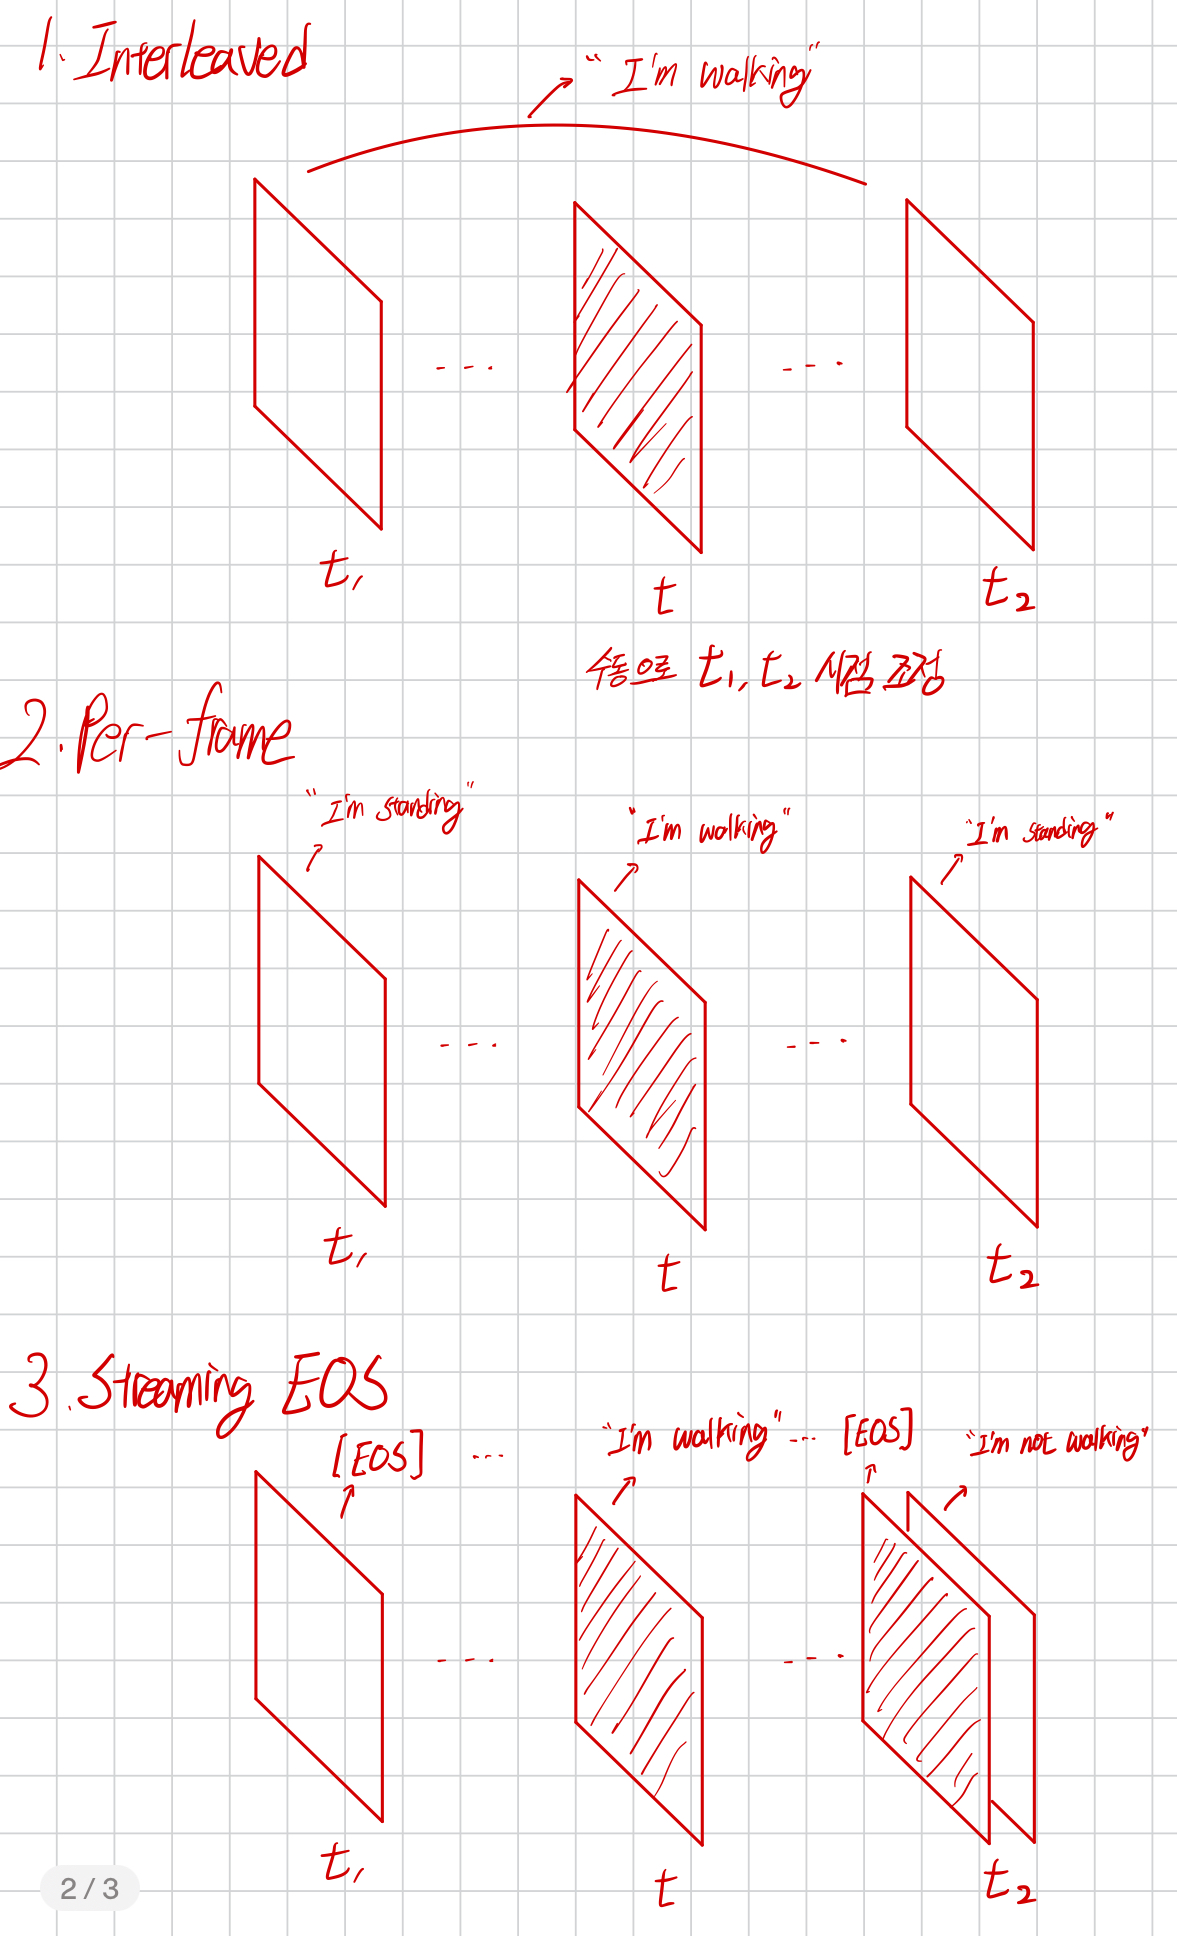 1. Interleaved
"I'm walking"
t₁
t
t₂
수동으로 t₁, t₂ 시점 조정
2. Per-frame
"I'm standing"
"I'm walking"
"I'm standing"
t₁
t
t₂
3. Streaming EOS
[EOS] ... "I'm walking" ... [EOS] "I'm not walking"
t₁
t
t₂
2 / 3